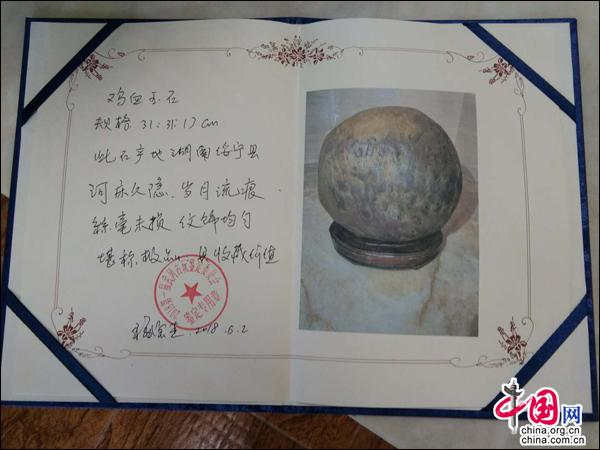 鸡血玉石
规格 31:31:17cm
此石产地湖南绥宁县
河床久隐、岁月流痕.
絲毫未损 纹饰均匀
堪称极品.. 具收藏价值
鉴定专用章
2018.6.2
中国网
china.org.cn
china.com.cn